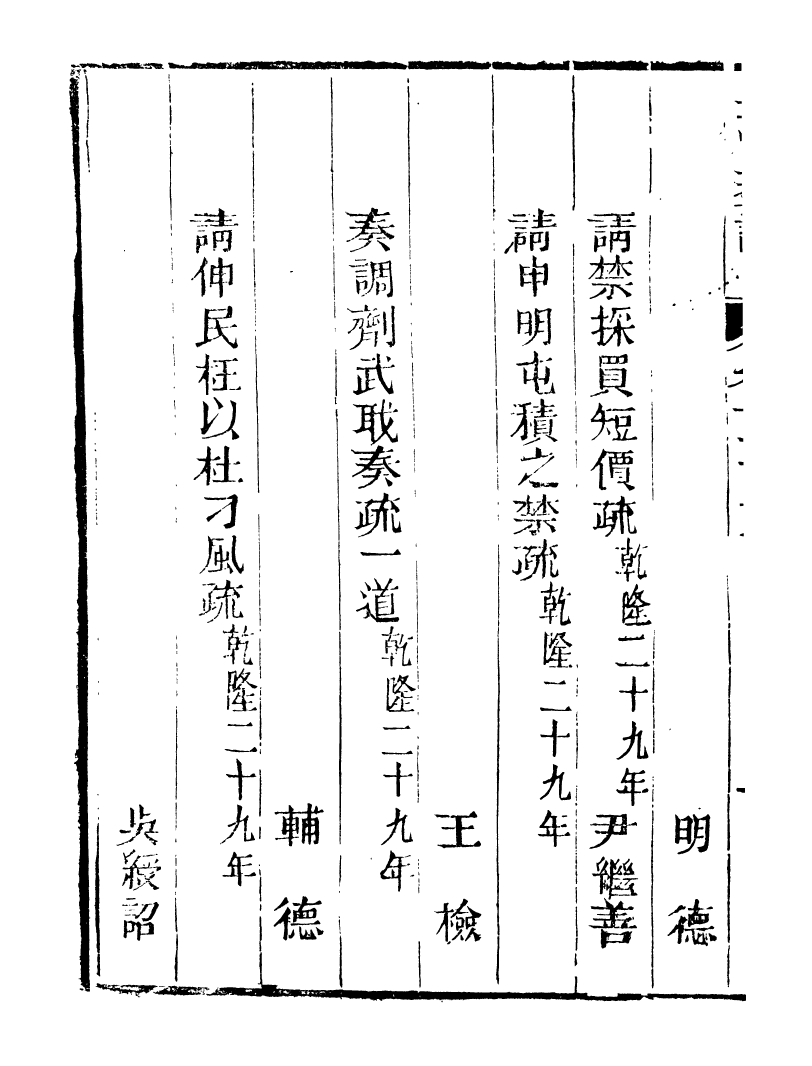 明德
請禁採買短價疏乾隆二十九年尹繼善
請申明屯積之禁疏乾隆二十九年
王檢
奏調劑武職奏疏一道乾隆二十九年
輔德
請伸民枉以杜刁風疏乾隆二十九年
吳綬詔